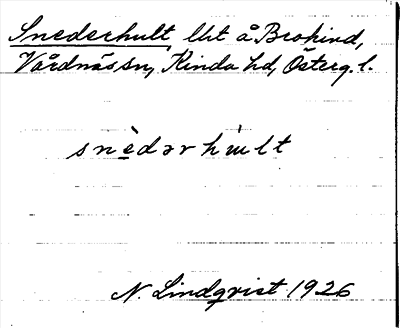 Snederhult lht å Brokind,
Vårdnäs sn, Kinda hd, Österg. l.
snèdərhùlt
N. Lindqvist 1926